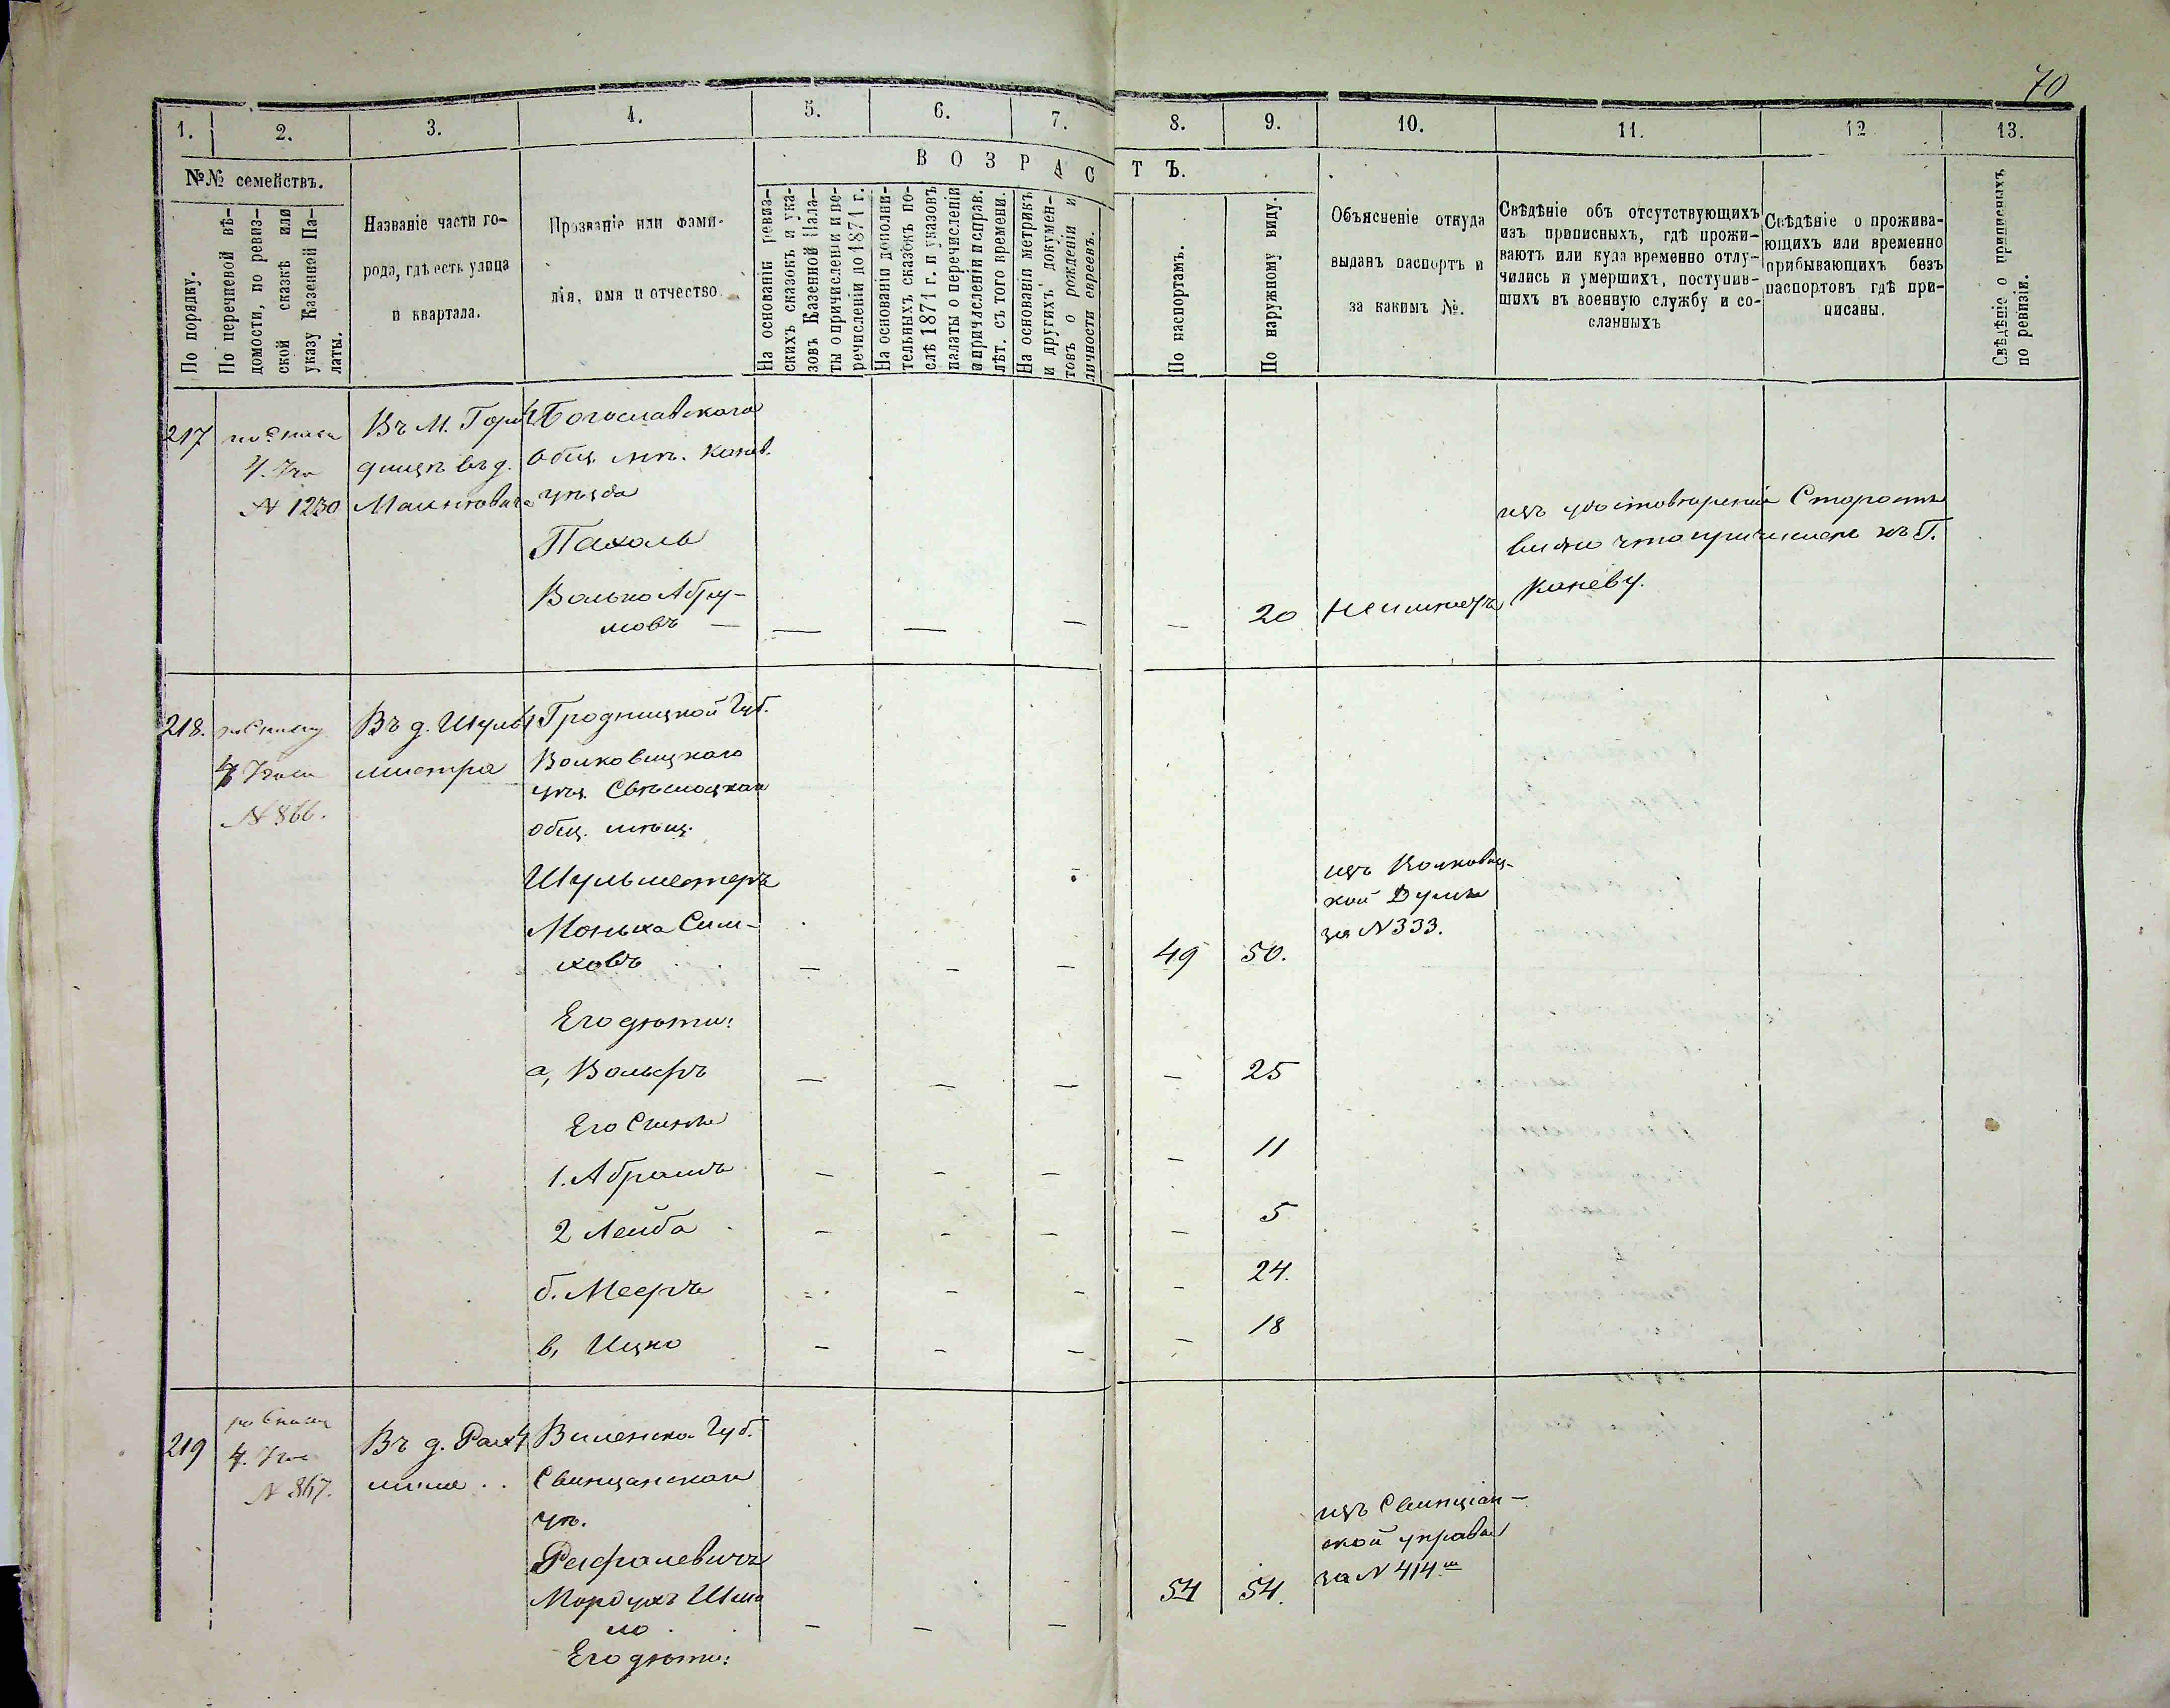 70
1. 2. 3. 4. 5. 6. 7. 8. 9. 10. 11. 12 13.
№№ семействъ.
В О З Р А С Т Ъ.
По порядку.
По перечневой вѣ-
домости, по ревиз-
ской сказкѣ или
указу Казенной Па-
латы.
Названіе части го-
рода, гдѣ есть улица
и квартала.
Прозваніе или фами-
лія, имя и отчество.
На основаніи ревиз-
скихъ сказокъ и ука-
зовъ Казенной Пала-
ты о причисленіи и пе-
речисленіи до 1871 г.
На основаніи дополни-
тельныхъ сказокъ по-
слѣ 1871 г. и указовъ
палаты о перечисленіи
и причисленіи и справ.
лѣт. съ того времени.
На основаніи метрикъ
и другихъ докумен-
товъ о рожденіи и
личности евреевъ.
По паспортамъ.
По наружному виду.
Объясненіе откуда
выданъ паспортъ и
за какимъ №.
Свѣдѣніе объ отсутствующихъ
изъ приписныхъ, гдѣ прожи-
ваютъ или куда временно отлу-
чились и умершихъ, поступив-
шихъ въ военную службу и со-
сланныхъ
Свѣдѣніе о прожива-
ющихъ или временно
прибывающихъ безъ
паспортовъ гдѣ при-
писаны.
Свѣдѣніе о приписныхъ
по ревизіи.
217
№ 1230
Въ М. Горо
дищѣ въ д.
Богославскаго
общ. мѣ. Канев.
уѣзда
Пахоль
Волько Абру-
мовъ — — — — — 20 Неимѣетъ
изъ удостовѣренія Старосты
видно что причисленъ къ Г.
Каневу.
218. по списку
№ 866.
Въ д. Шуль
мистра
Гродницкой Губ.
Волковицкаго
уѣз. Свѣслоцкаго
общ. мѣщ.
Шульместеръ
Монька Сим-
ховъ — — — 49 50.
изъ Волковиц-
кой Думы
за № 333.
Его дѣти:
а, Вольфъ — — — — 25
Его Сыны
1. Абрамъ — — — — 11
2 Лейба — — — — 5
б. Мееръ — — — — 24.
в, Ицко — — — — 18
219
№ 867.
Въ д. Рах
Виленска Губ.
Свинцянскаго
уѣ.
Рафалевичъ
Мордухъ Шмо
ло — — — 54 54.
изъ Свинціан-
ской управы
за № 414
Его дѣти: